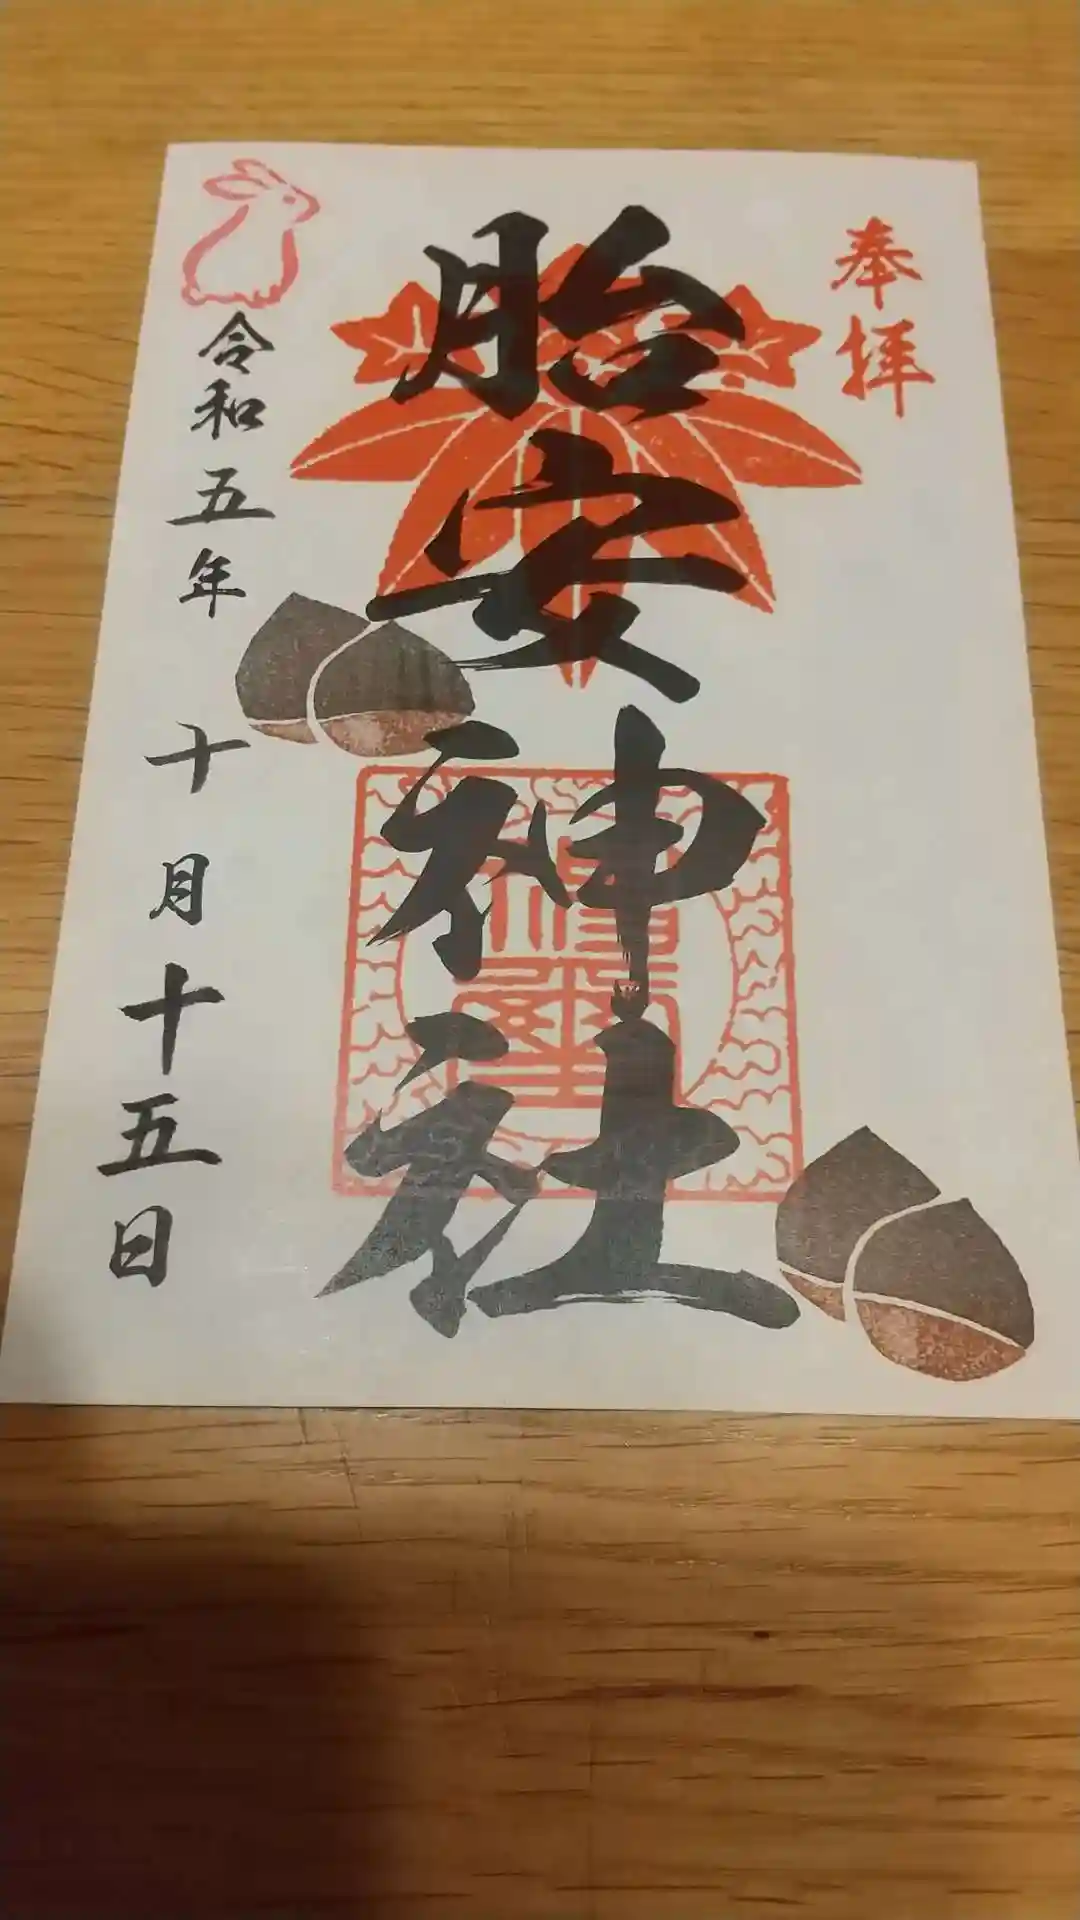 奉拝
胎安神社
令和五年 十月十五日